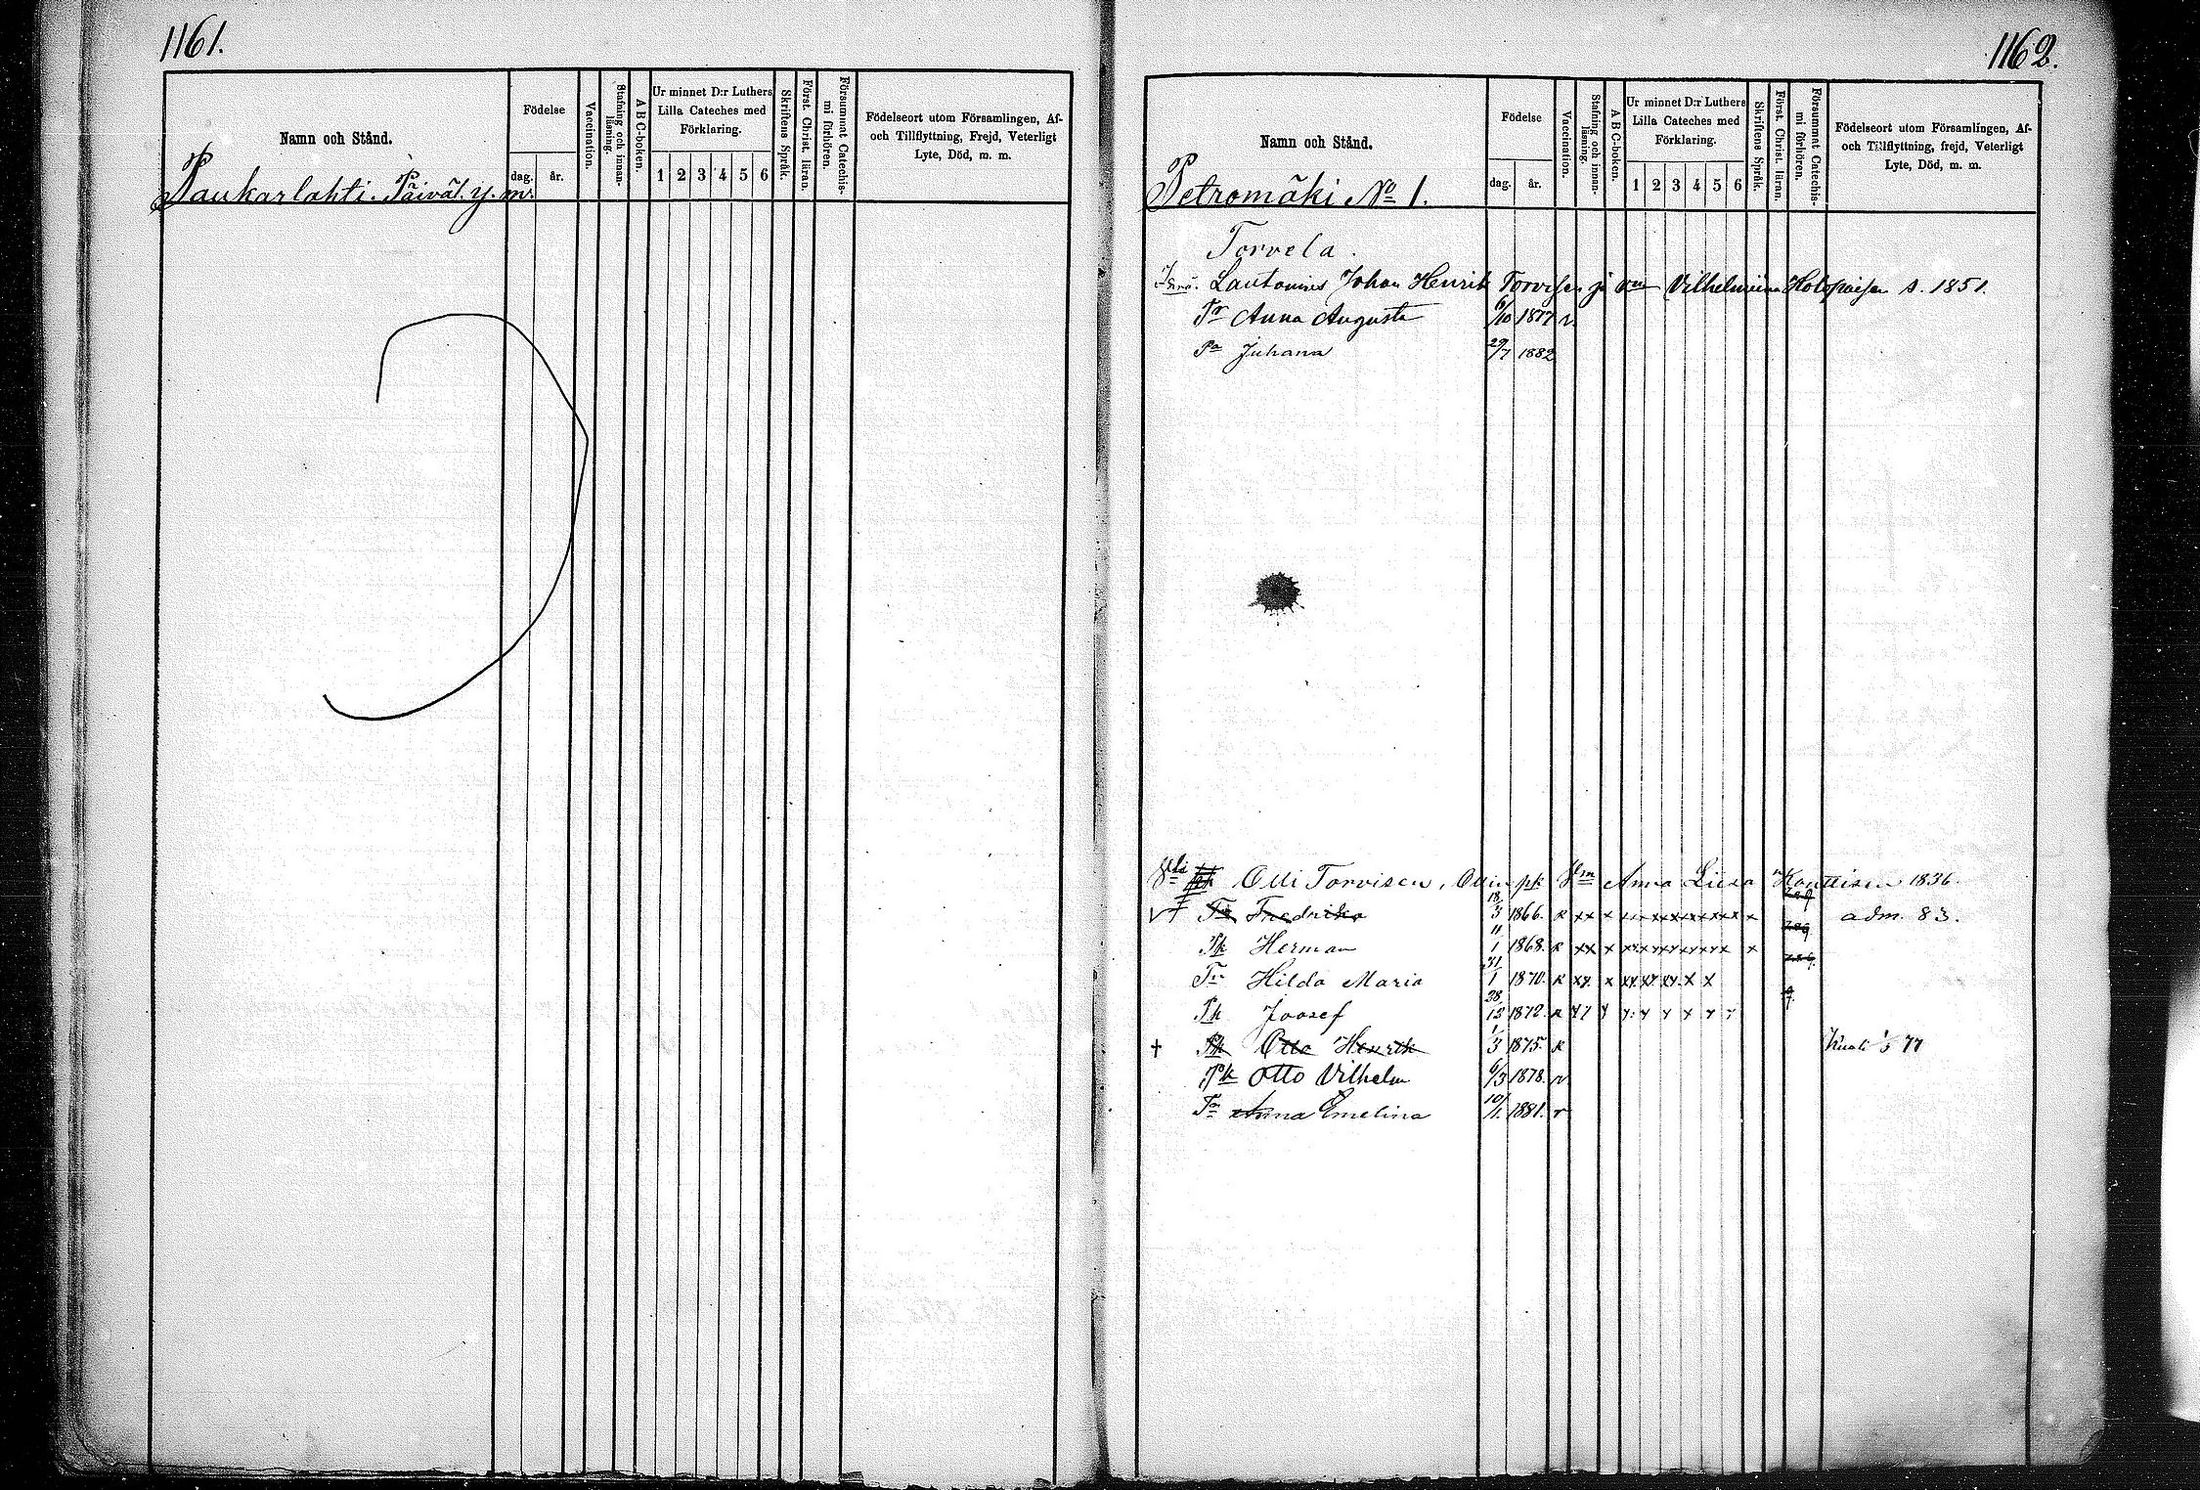 1161.
Namn och Stånd.
Födelse
dag.
år.
Vaccination.
Stafning och innan-
läsning.
ABC-boken.
Ur minnet D:r Luthers
Lilla Cateches med
Förklaring.
1 2 3 4 5 6
Skriftens Språk.
Först. Christ. läran.
Försummat Catechis-
mi förhören.
Födelseort utom Församlingen, Af-
och Tillflyttning, Frejd, Veterligt
Lyte, Död, m. m.
Paukarlahti. Päiväl. y. m.
1162.
Namn och Stånd.
Födelse
dag.
år.
Vaccination.
Stafning och innan-
läsning.
ABC-boken.
Ur minnet D:r Luthers
Lilla Cateches med
Förklaring.
1 2 3 4 5 6
Skriftens Språk.
Först. Christ. läran.
Försummat Catechis-
mi förhören.
Födelseort utom Församlingen, Af-
och Tillflyttning, frejd, Veterligt
Lyte, Död, m. m.
Petromäki No 1.
Torvela.
Lautamies Johan Henrik Torvisen ja Vilhelmiina Holopaisen s. 1851.
Tr Anna Augusta 6/10 1877 v.
Pa Juhana 29/7 1882
Olli Torvisen, Ollin pk Anna Liisa Konttisen 1836.
Tr Fredrika 18/3 1866. R xx x x adm. 83.
Pk Herman 11/1 1868. R xx x x
Tr Hilda Maria 31/1 1870. R
Pk Joosef 28/12 1872. R
† Pk Otto Henrik 1/3 1875. R 77
Pk Otto Vilhelm 6/3 1878. v.
Tr Anna Emelina 10/1 1881. v